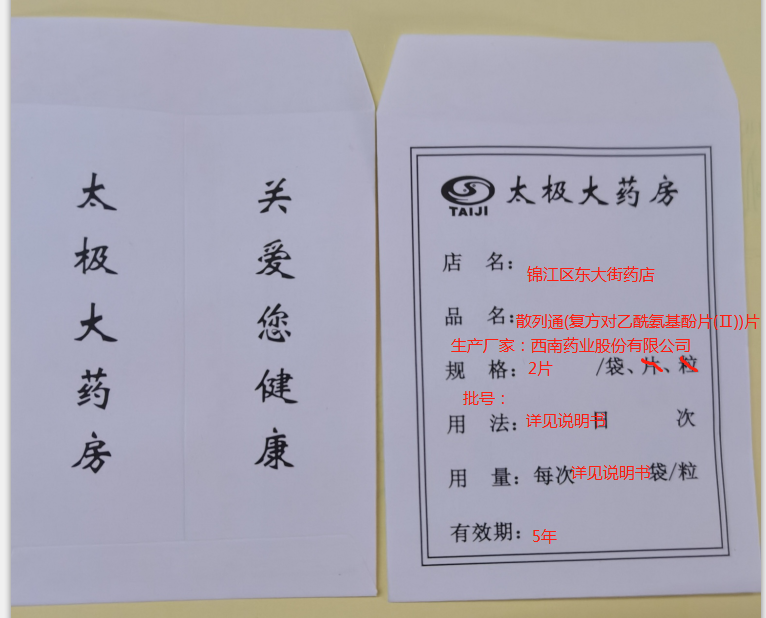 太极大药房
关爱您健康
TAIJI 太极大药房
店 名: 锦江区东大街药店
品 名: 散列通(复方对乙酰氨基酚片(Ⅱ))片
生产厂家：西南药业股份有限公司
规 格: 2片 /袋、片、粒
批号：
用 法: 详见说明书日 次
用 量: 每次详见说明书袋/粒
有效期: 5年